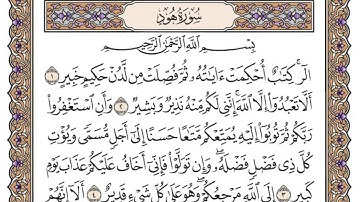 سُورَةُ هُودٍ
بِسْمِ اللَّهِ الرَّحْمَٰنِ الرَّحِيمِ
الٓر ۚ كِتَٰبٌ أُحْكِمَتْ ءَايَٰتُهُۥ ثُمَّ فُصِّلَتْ مِن لَّدُنْ حَكِيمٍ خَبِيرٍ ١
أَلَّا تَعْبُدُوٓا۟ إِلَّا اللَّهَ ۚ إِنَّنِى لَكُم مِّنْهُ نَذِيرٌ وَبَشِيرٌ ٢ وَأَنِ اسْتَغْفِرُوا۟
رَبَّكُمْ ثُمَّ تُوبُوٓا۟ إِلَيْهِ يُمَتِّعْكُم مَّتَٰعًا حَسَنًا إِلَىٰٓ أَجَلٍ مُّسَمًّى وَيُؤْتِ
كُلَّ ذِى فَضْلٍ فَضْلَهُۥ ۖ وَإِن تَوَلَّوْا۟ فَإِنِّىٓ أَخَافُ عَلَيْكُمْ عَذَابَ يَوْمٍ
كَبِيرٍ ٣ إِلَى اللَّهِ مَرْجِعُكُمْ ۖ وَهُوَ عَلَىٰ كُلِّ شَىْءٍ قَدِيرٌ ٤ أَلَآ إِنَّهُمْ